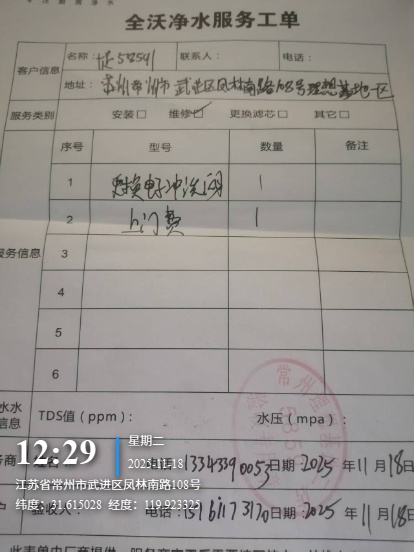 全沃净水服务工单
客户信息
名称：
联系人：
电话：
地址：常州市 武进区凤林南路108号理想基地区
服务类别
安装□ 维修☑ 更换滤芯□ 其它□
服务信息
序号 型号 数量 备注
1 更换电子冲洗阀 1
2 上门费 1
3
4
5
6
TDS值（ppm）： 水压（mpa）：
12:29
星期二
2025-11-18
江苏省常州市武进区凤林南路108号
纬度：31.615028 经度：119.923325
13343390053 日期：2025年11月18日
电话： 日期：2025年11月18日